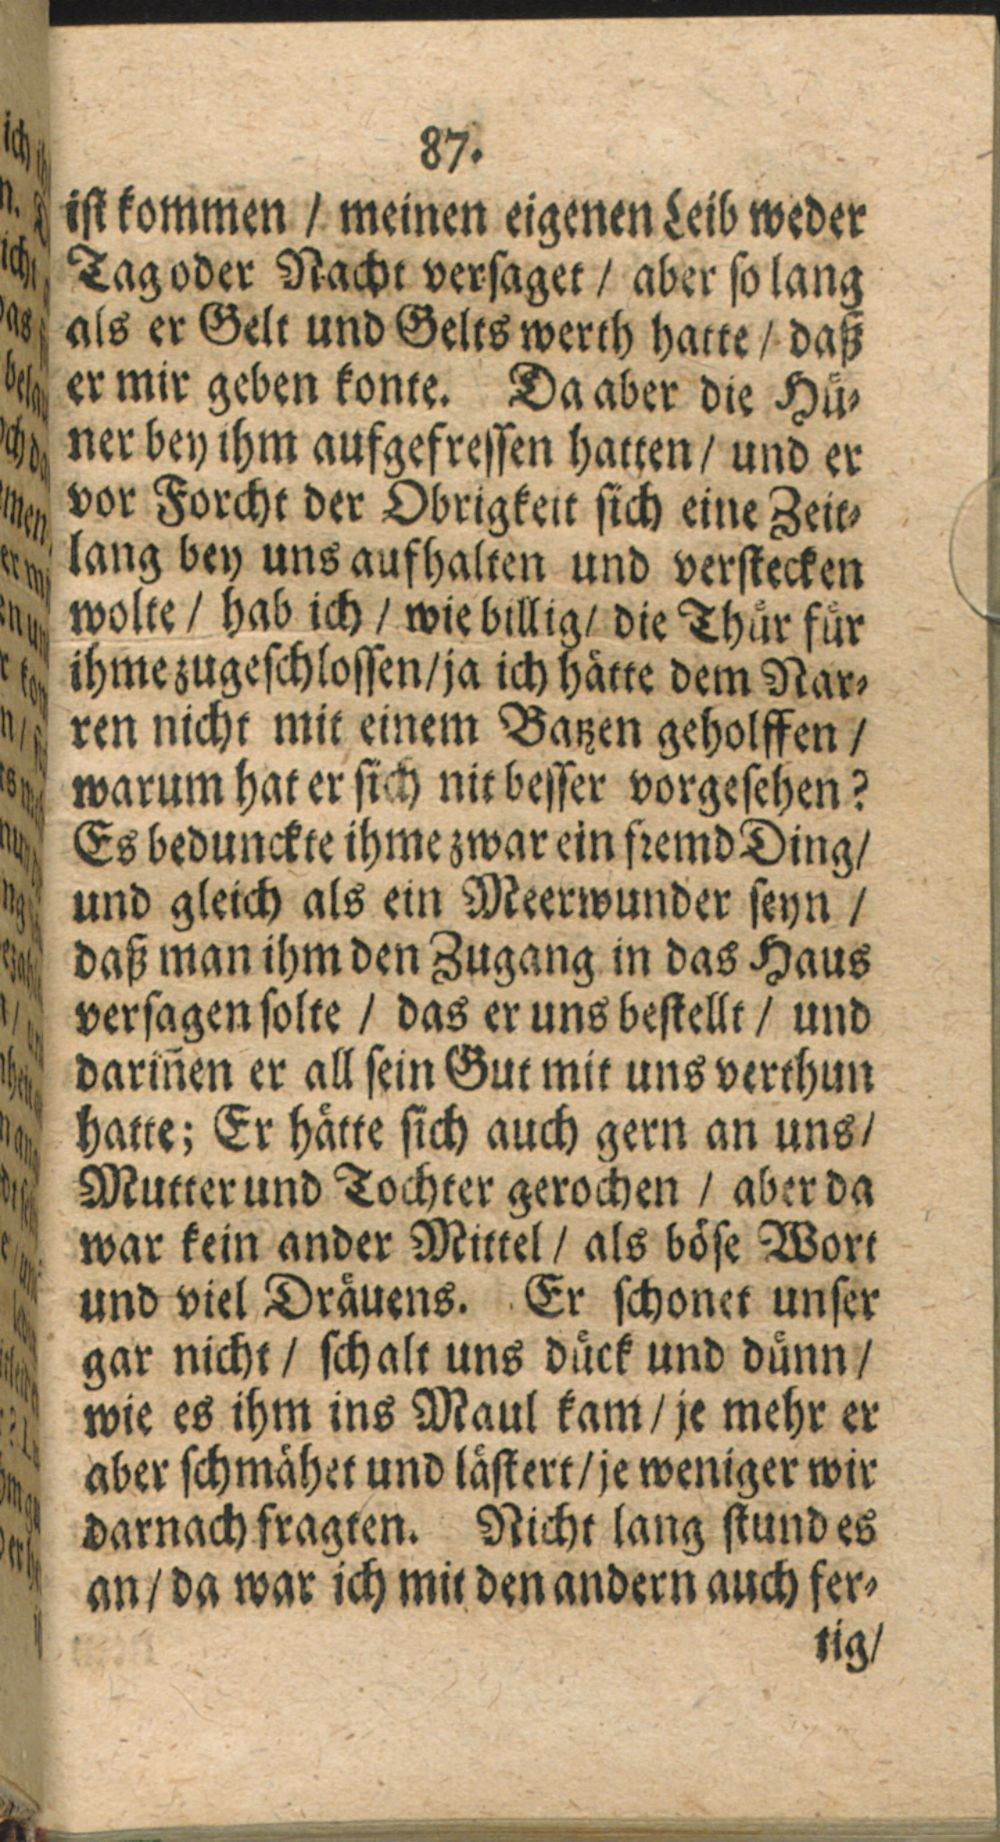 87.
ist kommen / meinen eigenen Leib weder
Tag oder Nacht versaget / aber so lang
als er Gelt und Gelts werth hatte / daß
er mir geben konte. Da aber die Hü-
ner bey ihm aufgefressen hatten / und er
vor Forcht der Obrigkeit sich eine Zeit-
lang bey uns aufhalten und verstecken
wolte / hab ich / wie billig / die Thür für
ihme zugeschlossen / ja ich hätte dem Nar-
ren nicht mit einem Batzen geholffen /
warum hat er sich nit besser vorgesehen?
Es bedunckte ihme zwar ein fremd Ding /
und gleich als ein Meerwunder seyn /
daß man ihm den Zugang in das Haus
versagen solte / das er uns bestellt / und
dariñen er all sein Gut mit uns verthun
hatte; Er hätte sich auch gern an uns /
Mutter und Tochter gerochen / aber da
war kein ander Mittel / als böse Wort
und viel Dräuens. Er schonet unser
gar nicht / schalt uns dück und dünn /
wie es ihm ins Maul kam / je mehr er
aber schmähet und lästert / je weniger wir
darnach fragten. Nicht lang stund es
an / da war ich mit den andern auch fer-
tig /